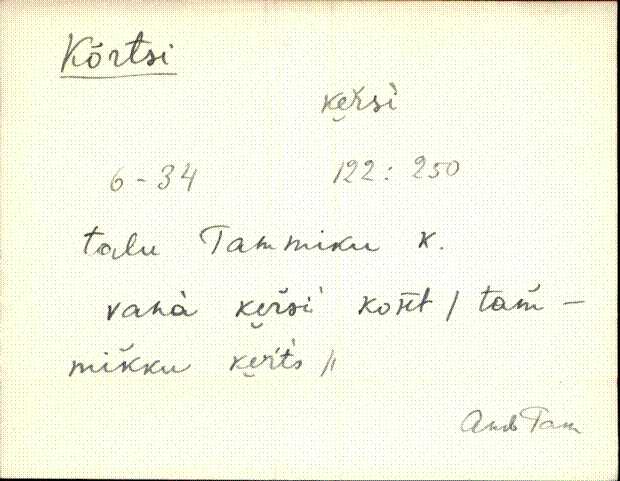 Kõrtsi
ke̮r̆si̇̀
6-34 122: 250
talu Tammiku k.
vanà ke̮r̆si̇̀ kohт / tam̆-
mik̆ku ke̮r̆t's //
And Tam